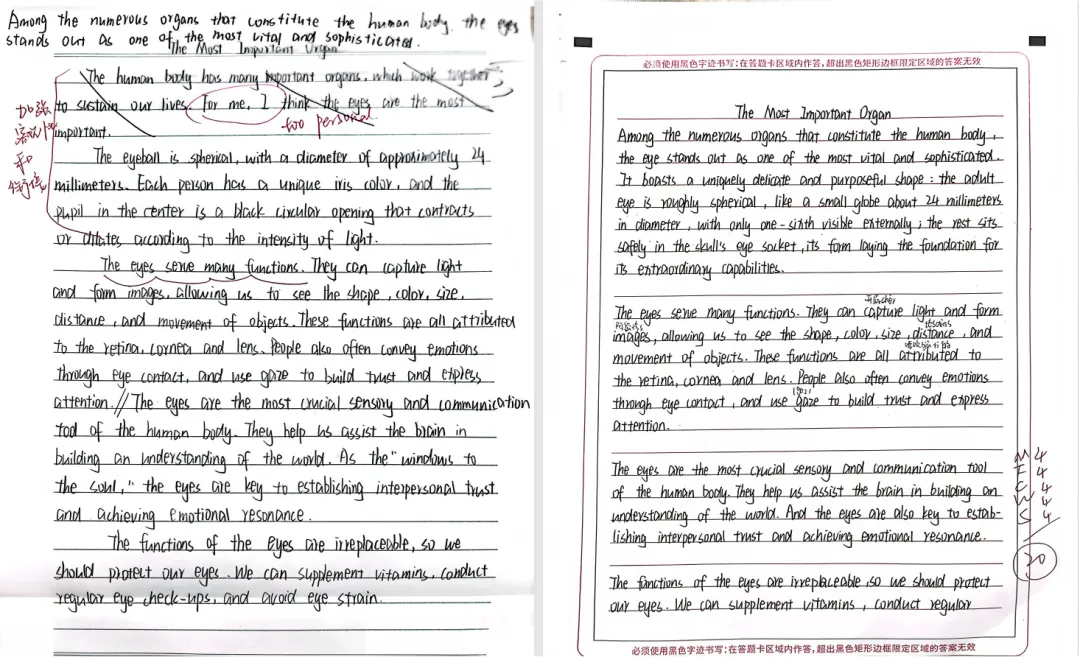 Among the numerous organs that constitute the human body, the eyes
stands out as one of the most vital and sophisticated.
The Most Important Organ
The human body has many important organs, which work together
to sustain our lives. For me, I think the eyes are the most
too personal
important.
加强
客观性
和
The eyeball is spherical, with a diameter of approximately 24
millimeters. Each person has a unique iris color, and the
pupil in the center is a black circular opening that contracts
or dilates according to the intensity of light.
The eyes serve many functions. They can capture light
and form images, allowing us to see the shape, color, size,
distance, and movement of objects. These functions are all attributed
to the retina, cornea and lens. People also often convey emotions
through eye contact, and use gaze to build trust and express
attention. // The eyes are the most crucial sensory and communication
tool of the human body. They help us assist the brain in
building an understanding of the world. As the "windows to
the soul," the eyes are key to establishing interpersonal trust
and achieving emotional resonance.
The functions of the eyes are irreplaceable, so we
should protect our eyes. We can supplement vitamins, conduct
regular eye check-ups, and avoid eye strain.
必须使用黑色字迹书写:在答题卡区域内作答,超出黑色矩形边框限定区域的答案无效
The Most Important Organ
Among the numerous organs that constitute the human body,
the eye stands out as one of the most vital and sophisticated.
It boasts a uniquely delicate and purposeful shape: the adult
eye is roughly spherical, like a small globe about 24 millimeters
in diameter, with only one-sixth visible externally; the rest sits
safely in the skull's eye socket, its form laying the foundation for
its extraordinary capabilities.
The eyes serve many functions. They can capture light and form
images, allowing us to see the shape, color, size, distance, and
movement of objects. These functions are all attributed to
the retina, cornea and lens. People also often convey emotions
through eye contact, and use gaze to build trust and express
attention.
The eyes are the most crucial sensory and communication tool
of the human body. They help us assist the brain in building an
understanding of the world. And the eyes are also key to estab-
lishing interpersonal trust and achieving emotional resonance.
M 4
I 4
C 4
W 4
S 4
20
The functions of the eyes are irreplaceable, so we should protect
our eyes. We can supplement vitamins, conduct regular
必须使用黑色字迹书写:在答题卡区域内作答,超出黑色矩形边框限定区域的答案无效